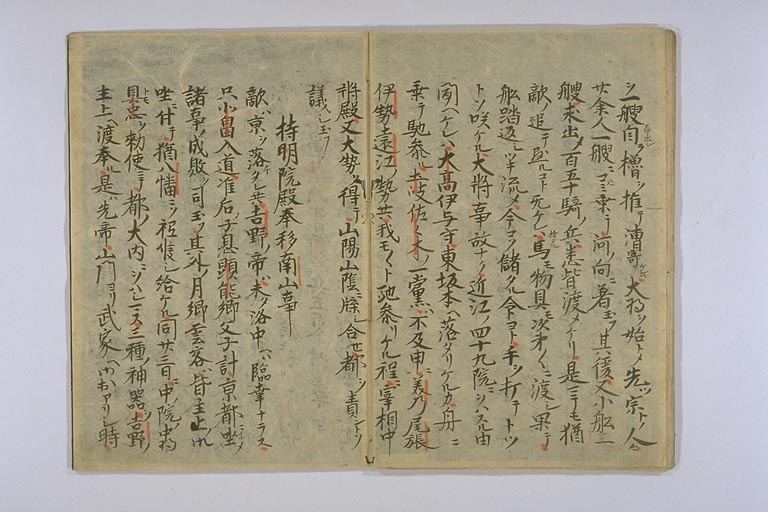 シ一艘自ラ櫓ヲ推テ漕寄ケル大将ヲ始トメ先ツ宗トノ人々
廿余人一艘ニコミ乗テ河ノ向ニ著玉フ其後又小船二
艘求出メ百五十騎ノ兵悉皆渡メケリ是ニテモ猶
敵ノ追テ懸ルト死ケル馬モ物具モ次第々々ニ渡シ果テ
船踏返シ半流メ今コソ儲タル命ヨト手ヲ打テトツ
トソ咲ケル大将事故ナク近江ノ四十九院ニヲハスル由
聞ヘケレハ大高伊与守東坂本ヘ落タリケルカ舟ニ
乗テ馳参ル土岐佐々木ノ一党ハ不及申美乃尾張
伊勢遠江ノ勢共我モ々々ト馳参リケル程ニ宰相中
将殿又大勢ヲ得テ山陽山陰ニ牒シ合セ都ヲ責ントソ
議シ玉フ
持明院殿奉移南山事
敵ハ京ヲ落タレ共吉野ノ帝ハ未タ洛中ヘ臨幸ナラス
只北畠入道准后子息顕能卿父子計京都ニ坐メ
諸事ノ成敗ヲ司玉フ其外ノ月卿雲客ハ皆主上ノ
坐ニ付テ猶八幡ニソ祗候シ給ケル同廿三日ニ中院ノ中将
具忠ヲ勅使ニテ都ノ大内ニヲハシマス三種ノ神器ヲ吉野ノ
主上ヘ渡奉ル是ハ先帝山門ヨリ武家ヘ御出アリシ時